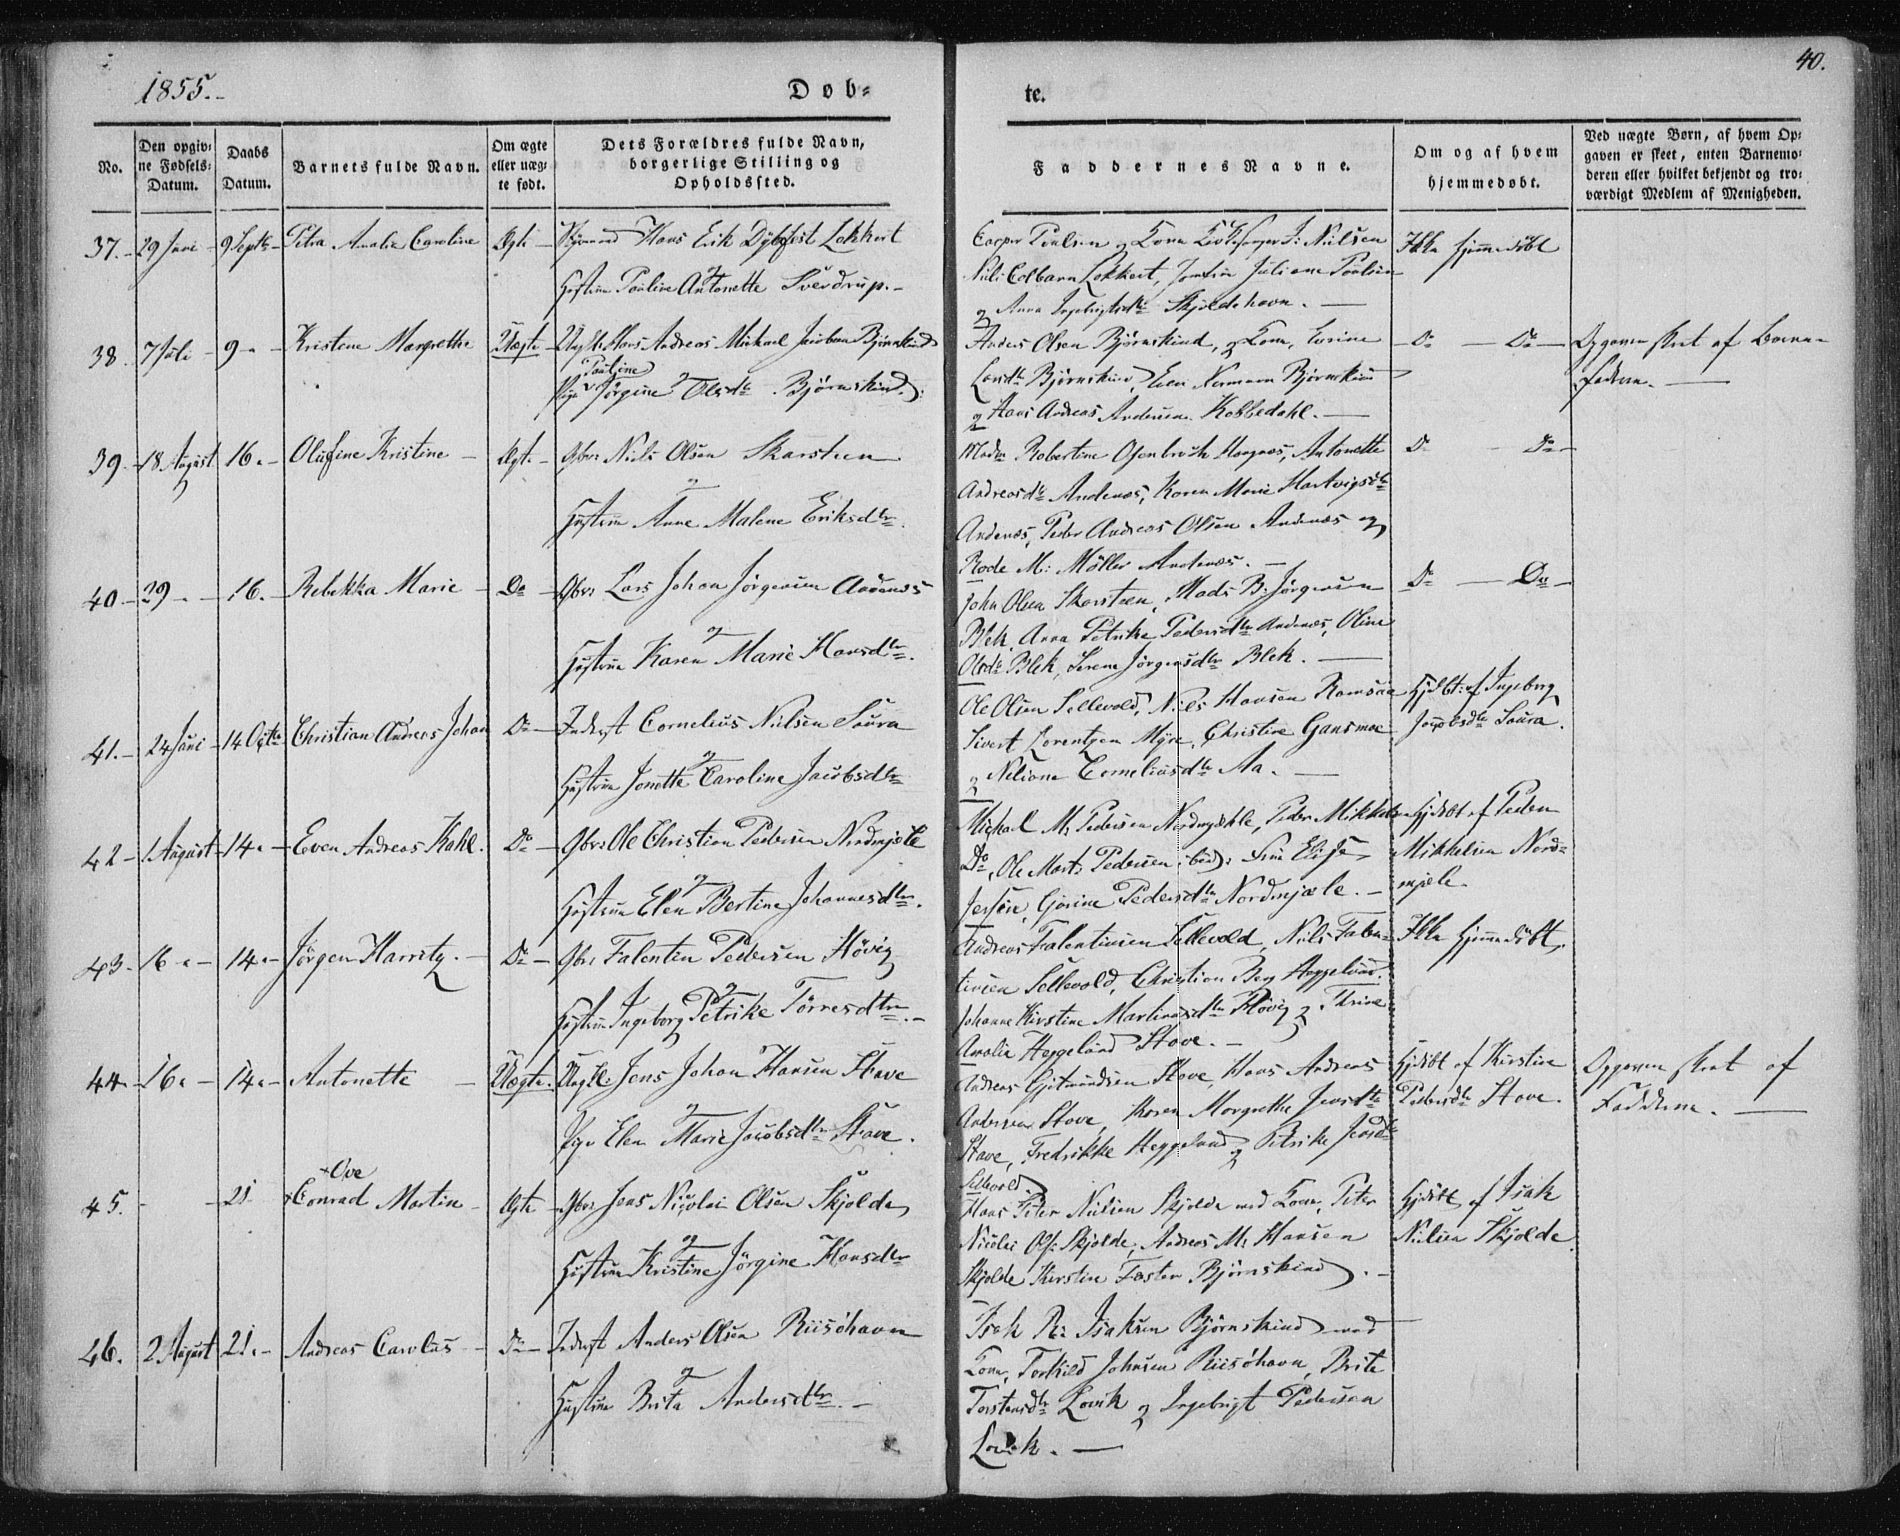 1855.
Døb-
te.
40.
No.
Den opgiv-
ne Fødsels-
Datum.
Daabs
Datum.
Barnets fulde Navn.
Om ægte
eller uæg-
te født.
Dets Forældres fulde Navn,
borgerlige Stilling og
Opholdssted.
Faddernes Navne.
Om og af hvem
hjemmedøbt.
Ved uægte Børn, af hvem Op-
gaven er skeet, enten Barnemo-
deren eller hvilket bekjendt og tro-
værdigt Medlem af Menigheden.
37. 29 Juni 9 Septbr Petra Amalia Caroline Ægte Hans Erik Dybfest Lokkert
og
Hustrue Pauline Antonette Sverdrup.
Casper Paulsen og Kone J: Nielsen
Colbann Lokkert, Jomfru Juliane Paulsen
og Anna Skjoldehavn.
Ikke hjemmedøbt
38. 7 Juli 9 Kristene Margrethe Uægte Andreas Michael Jacobsen Bjørnskind
Pauline
Pige Jørgine Olsdtr Bjørnskind.
Anders Olsen Bjørnskind, og Kone,
Larsdtr Bjørnskind, Normann Bjørnskind
og Hans Andreas Andersen Kobbedahl.
Do Do
Opgaven skeet af Barne-
faderen.
39. 18 August 16. Olufine Kristine Ægt. Gbr: Niels Olsen Skarsteen
og
Hustrue Anne Malene Eriksdtr.
Madm Robertine Haugnæs, Antonette
Andreasdtr Andenæs, Karen Marie Hartvigsdtr
Andenæs, Peder Andreas Olsen Andenæs og
M: Møller Andenæs.
Do Do
40 29 16. Rebekka Marie Do Gbr: Lars Johan Jørgensen Andenæs
og
Hustrue Karen Marie Hansdtr.
John Olsen Skarsteen, Mads B: Jørgensen
Blek, Anna Petrike Pedersdtr Andenæs, Oline
Olsdtr Blek, Serene Jørgensdtr Blek.
Do Do
41. 24 Juni 14 Octbr Christian Andreas Johan Do Inderst Cornelius Nielsen Saura
og
Hustrue Jonette Caroline Jacobsdtr
Ole Olsen Sellevold, Niels Hansen Ramsaa
Sivert Lorentzen Myre, Christine Gansmoe
og Neliane Corneliusdtr Aa.
Hjdbt: af Ingeborg
Jacobsdtr Saura.
42 1 August 14. Even Andreas Kahl. Do Gbr: Ole Christian Pedersen Nordmjele
og
Hustrue Elen Bertine Johannesdtr.
Michael M: Pedersen Nordmjehle, Peder Mikkelsen
Do, Ole Mart: Pedersen ibid:
Gjørine Pedersdtr Nordmjele.
Hjdbt af Peder
Mikkelsen Nord-
mjele.
43. 16 14. Jørgen Harritz. Do Gbr: Falentin Pedersen Høvig
og
Hustrue Ingeborg Petrike Tørresdtr.
Andreas Falentinsen Sellevold, Niels Falen-
tinsen Sellevold, Christian Berg Heggelund.
Johanne Kirstine Martinusdtr Høvig og Thrine
Amalia Heggelund Stave.
Ikke hjemmedøbt,
44. 16 14. Antonette Uægte. Ungk: Jens Johan Hansen Stave
og
Pige Elen Marie Jacobsdtr Stave.
Andreas Stave, Hans Andreas
Andersen Stave, Karen Margrethe Jensdtr
Stave, Fredrikke Heggelund og Petrike Jensdtr
Sellevold.
Hjdbt af Kirstine
Pedersdtr Stave.
Opgaven skeet af
Fadderne.
45. 21 Conrad Ove Martin Ægte Gbr: Jens Nicolai Olsen Skjolde
og
Hustrue Kristine Jørgine Hansdtr
Hans Peter Nielsen Skjolde med Kone, Peter
Nicolai Ols: Skjolde, Andreas M: Hansen
Skjolde Kirstine Bjørnskind.
Hjdbt af Isak
Nielsen Skjolde.
46. 2 August 21. Andreas Carolus Do Inderst Anders Olsen Riisöhavn
og
Hustrue Brita Andersdtr.
Isak R: Isaksen Bjørnskind med
Kone, Torkild Johnsen Riisöhavn, Brite
Torstensdtr Lovik og Ingebrigt Pedersen
Lovik.